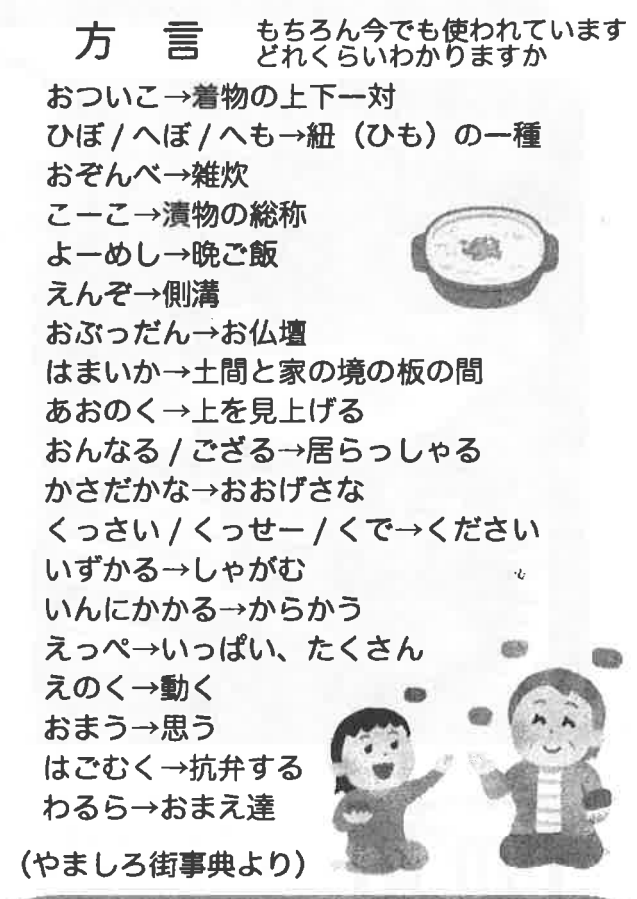 方言
もちろん今でも使われています
どれくらいわかりますか
おついこ→着物の上下一対
ひぼ/へぼ/へも→紐（ひも）の一種
おぞんべ→雑炊
こーこ→漬物の総称
よーめし→晩ご飯
えんぞ→側溝
おぶっだん→お仏壇
はまいか→土間と家の境の板の間
あおのく→上を見上げる
おんなる/ござる→居らっしゃる
かさだかな→おおげさな
くっさい/くっせー/くで→ください
いずかる→しゃがむ
いんにかかる→からかう
えっぺ→いっぱい、たくさん
えのく→動く
おまう→思う
はごむく→抗弁する
わるら→おまえ達
（やましろ街事典より）